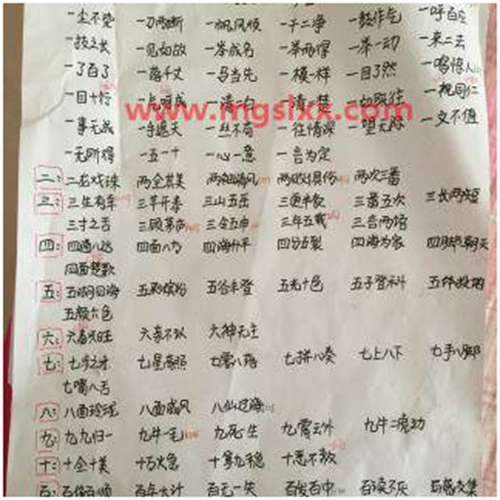 一尘不染 一刀两断 一帆风顺 一干二净 一鼓作气 一呼百应
一技之长 一见如故 一举成名 一举两得 一举一动 一来二去
一了百了 一落千丈 一马当先 一模一样 一目了然 一鸣惊人
一目十行 一气呵成 一清二白 一清二楚 一如既往 一视同仁
www.mgslxx.com
一事无成 一手遮天 一丝不苟 一往情深 一望无际 一文不值
一无所得 一五一十 一心一意 一言为定
二：二龙戏珠 两全其美 两袖清风 两败俱伤 两次三番
三：三生有幸 三羊开泰 三山五岳 三更半夜 三番五次 三长两短
三寸之舌 三顾茅庐 三令五申 三年五载 三言两语
四：四通八达 四面八方 四海升平 四分五裂 四海为家 四脚朝天
四面楚歌
五：五湖四海 五彩缤纷 五谷丰登 五光十色 五子登科 五体投地
五颜六色
六：六畜兴旺 六亲不认 六神无主
七：七步之才 七星高照 七零八落 七拼八凑 七上八下 七手八脚
七嘴八舌
八：八面玲珑 八面威风 八仙过海
九：九九归一 九牛一毛 九死一生 九霄云外 九牛二虎之力
十：十全十美 十万火急 十拿九稳 十恶不赦
百：百依百顺 百年大计 百无一失 百发百中 百读不厌 百废待兴